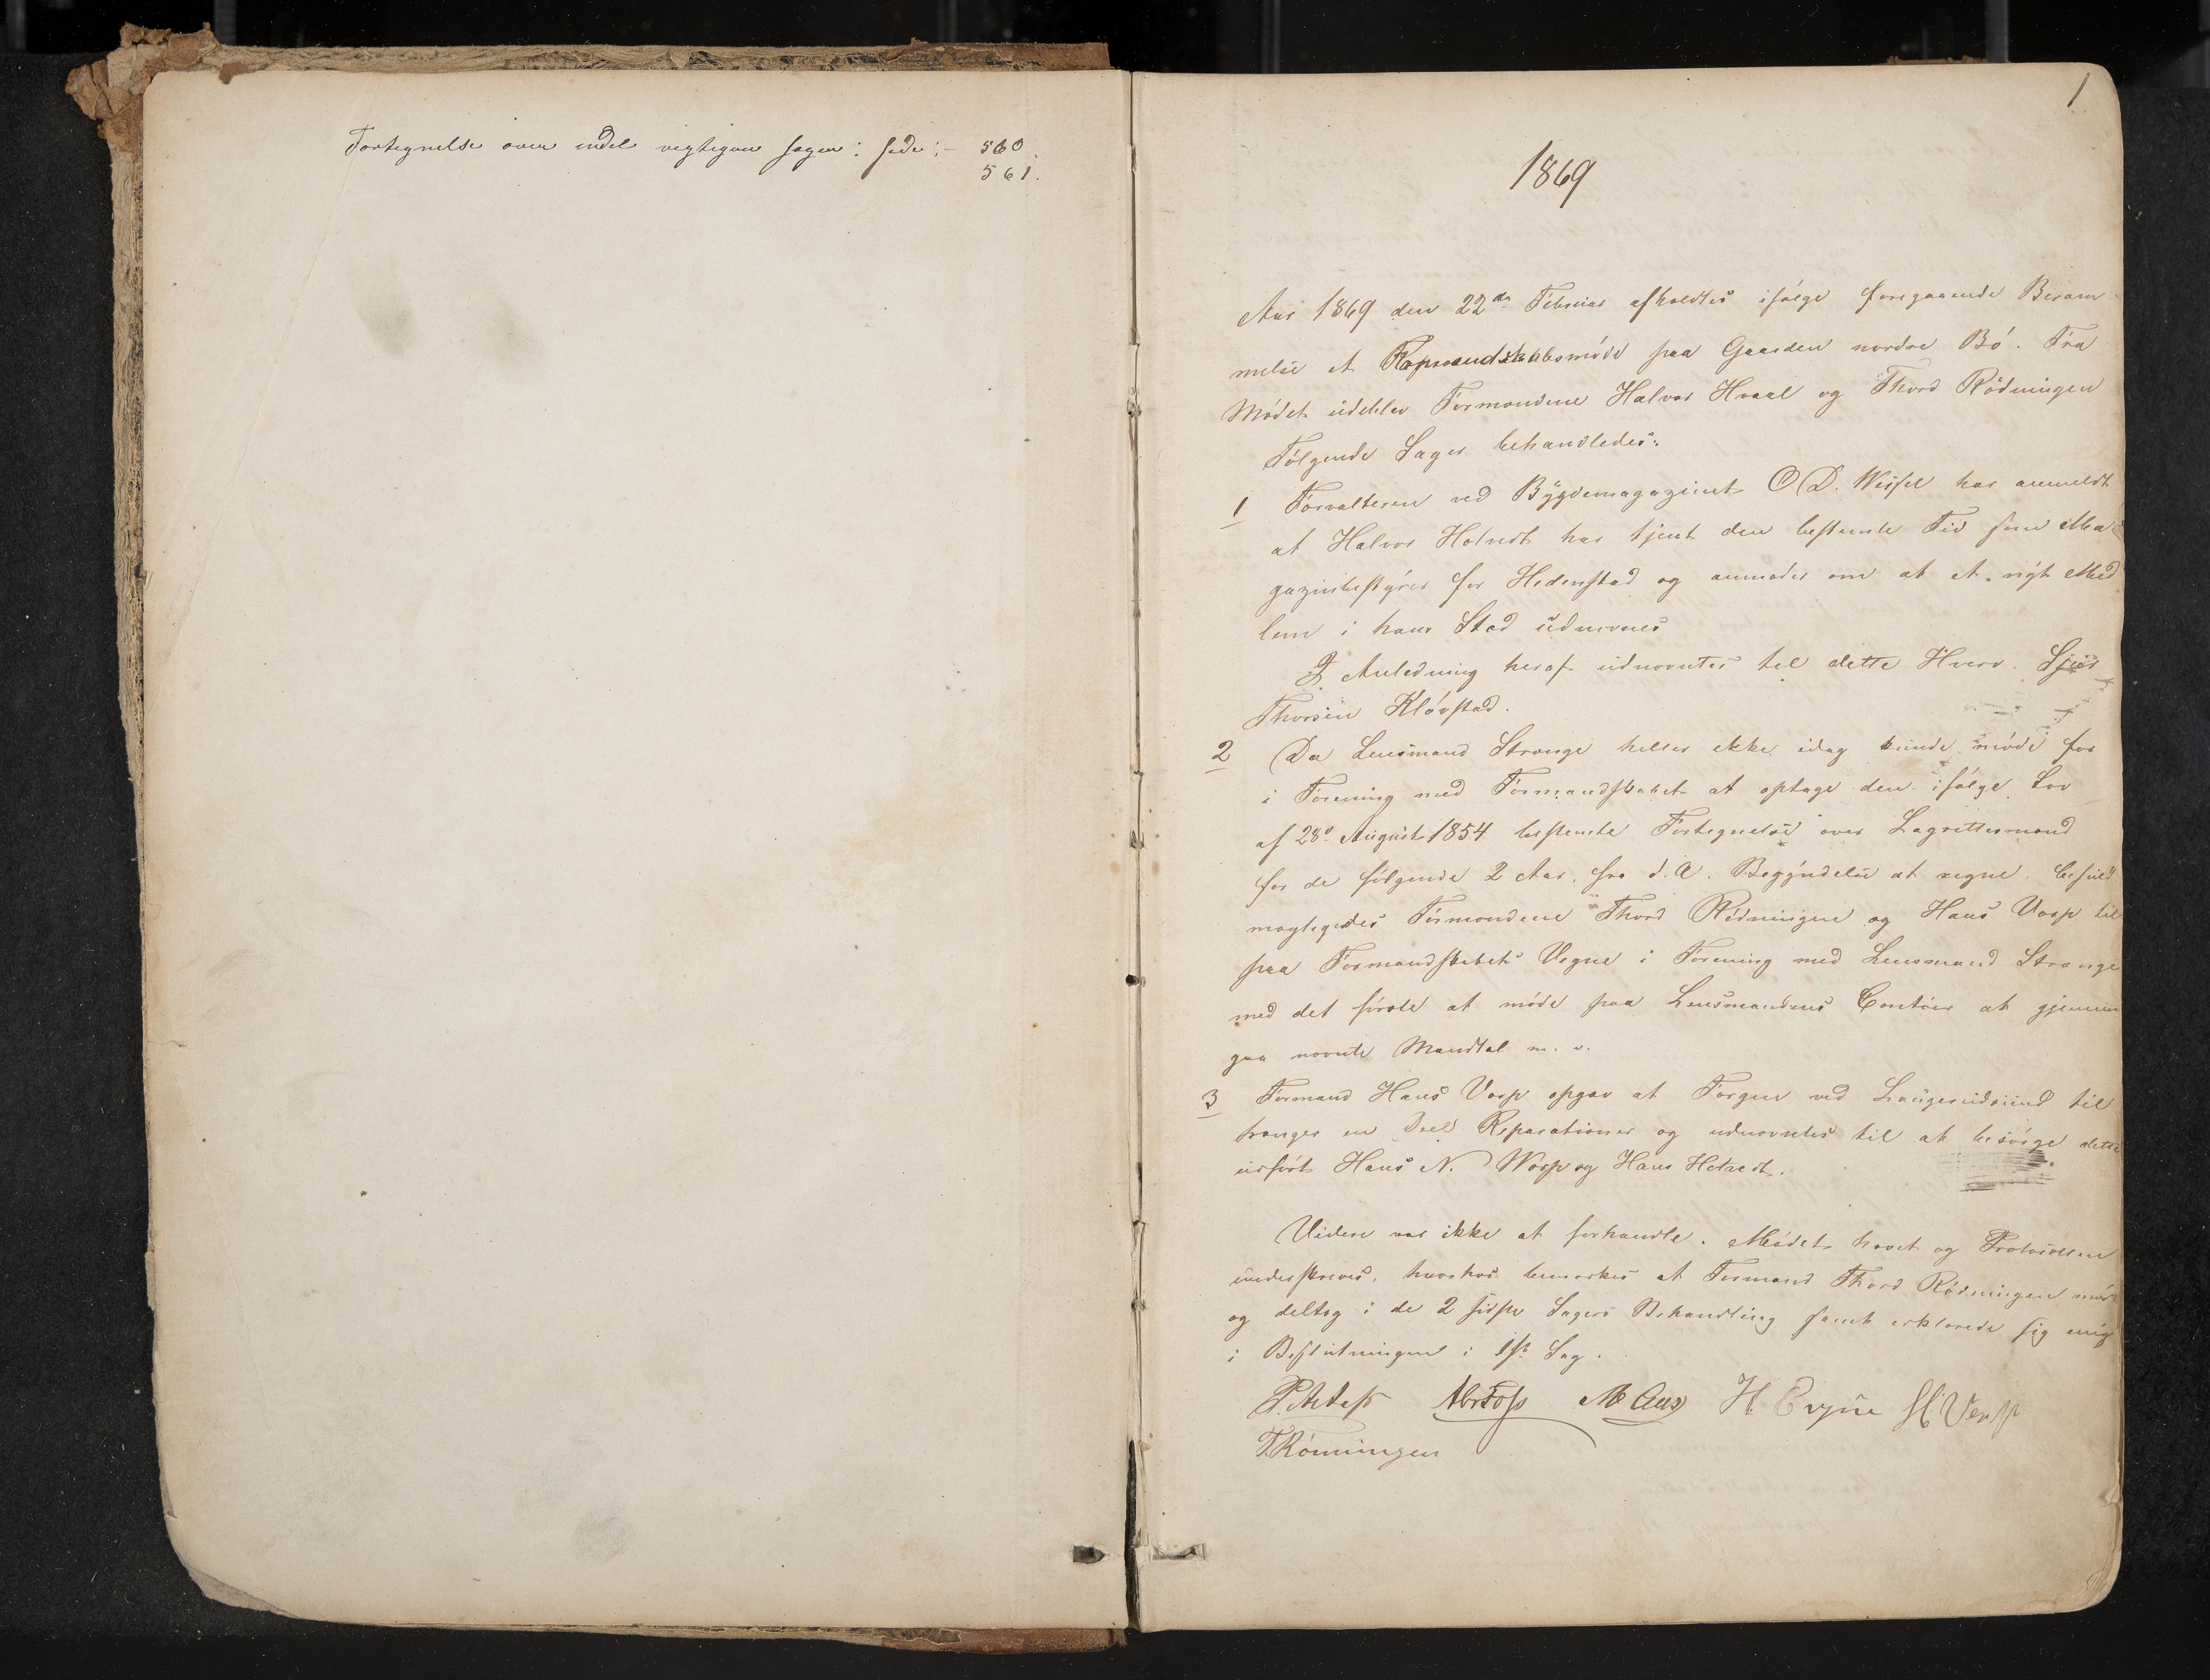 Fortegnelse over endel vigtigere sager: side:- 560
561.
1
1869
Aar 1869 den 22de Februar afholdtes ifølge foregaaende Beram-
melse et Formandskabsmøde paa Gaarden nordre Bø. Fra
Mødet udeblev Formændene Halvor Hvaal og Thord Rødningen
Følgende Sager behandledes:
1 Forvalteren ved Bygdemagazinet O D. Wessel har anmeldt
at Halvor Hotvedt har tjent den bestemte Tid som Ma-
gazinbestyrer for Hedenstad og anmodes om at et nyt Med
lem i hans Sted udnævnes
I Anledning heraf udnævntes til dette Hverv
Thorsen Kløvstad.
2 Da Lensmand Strange heller ikke idag kunde møde for
i Forening med Formandskabet at optage den ifølge Lov
af 28de August 1854 bestemte Fortegnelse over Lagrettesmænd
for de følgende 2 Aar, fra d. A. Begyndelse at regne, befuld
mægtigedes Formændene Thord Rødningen og Hans Værp til
paa Formandskabets Vegne i Forening med Lensmand Strange
med det første at møde paa Lensmandens Contoir at gjennem
gaa nævnte Mandtal m. v.
3 Formand Hans Værp opgav at Færgen ved Laugerudsund til
trænger en Deel Reparationer og udnævntes til at besørge dette
udført Hans N. Værp og Hans Hotvedt.
Videre var ikke at forhandle. Mødet hævet og Protocollen
underskreves, hvorhos bemærkes at Formand Thord Rødningen mød
og deltog i de 2 sidste Sagers Behandling samt erklærede sig enig
i Beslutningen i 1ste Sag.
AbrFoss M Aas H Værp
T.Rønningen